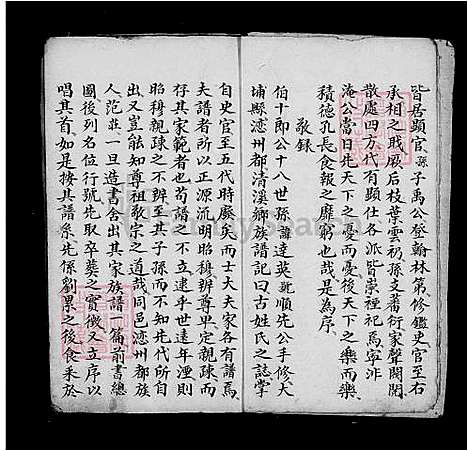 皆居顯官孫子禹公登翰林第修鑑史官至右
承相之戢風后枝葉雲礽孫支蕃衍家聲閥閱
散處四方代有顯仕各派皆崇祀焉寧非
淹公當日先天下之憂而憂後天下之樂而樂
積德孔長食報之靡窮也哉是為序
敬錄
伯十郎公十八世孫諱達英號順先公手修大
埔縣㴐州都清溪鄉族譜記曰古姓氏之誌掌
自史官至五代時廢矣而士大夫家各有譜焉
夫譜者所以正源流明昭穆辨尊卑定親疎而
存其家範者也苟譜一不立逮乎世遠年湮則
昭穆親疎之不辨至其子孫而不知先代所自
出又豈能知尊祖敬宗之道哉同邑㴐州都族
人范莊一旦造書舍出其家族譜一篇前書總
圖後列名位行號先取卒葬之實徵又立序以
唱其首如是按其譜系先係劉累之後食采於